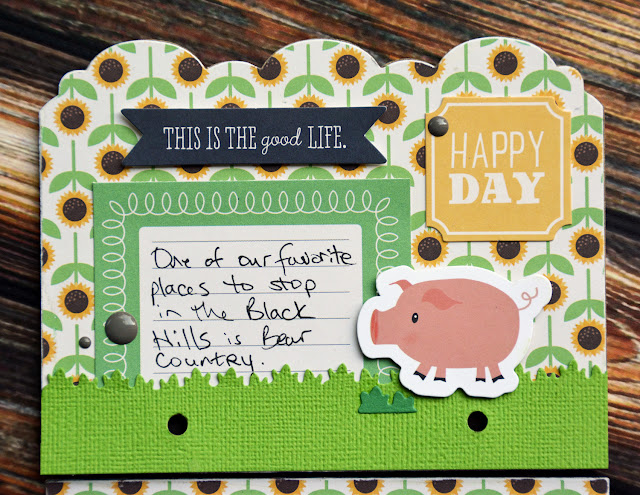 THIS IS THE good LIFE.
HAPPY
DAY
One of our favorite
places to stop
in the Black
Hills is Bear
Country.